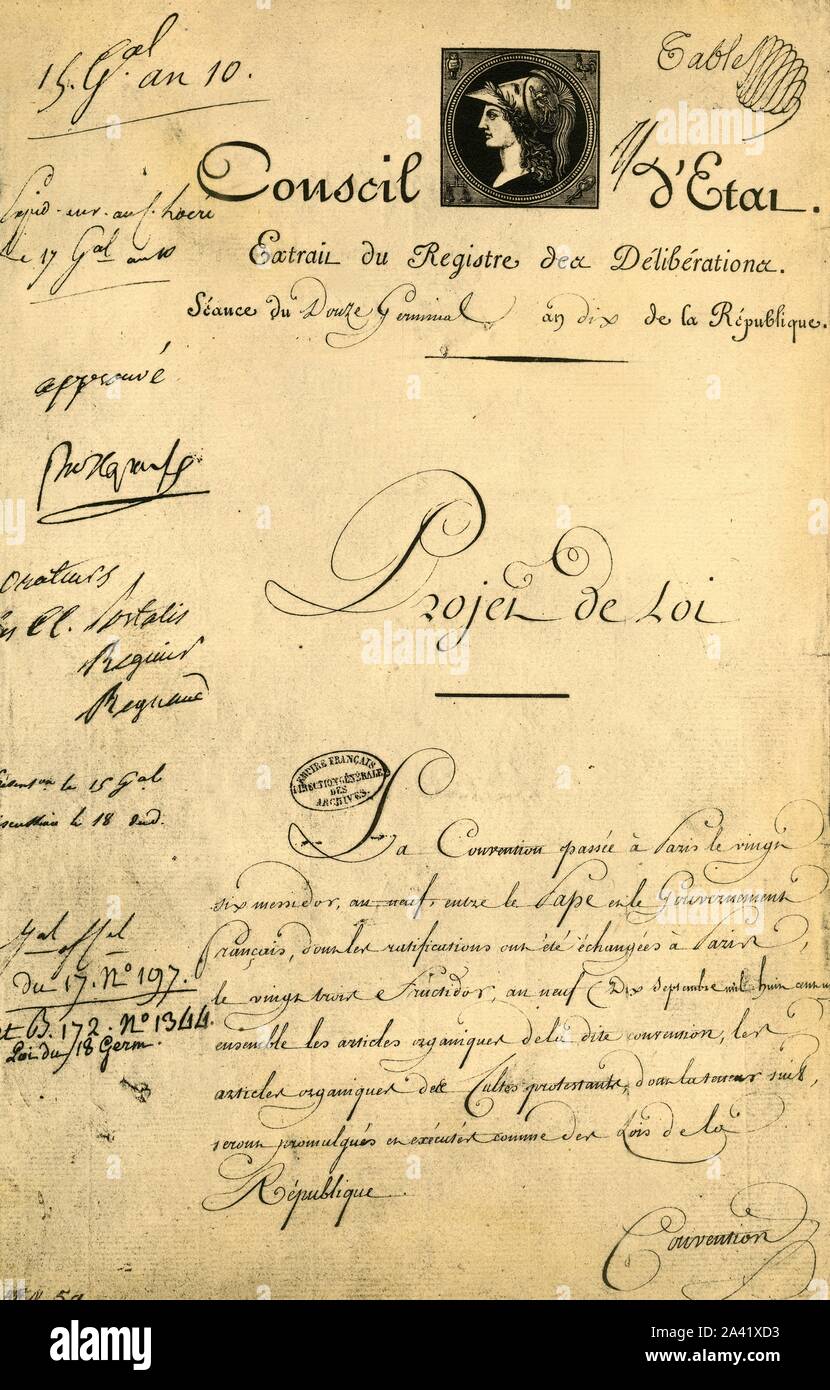 15. Gal an 10.
Table
Conseil d'Etat.
le 17 Gal an 10
Extrait du Registre des Délibérations.
Séance du Douze Germinal, an dix de la République.
approuvé
Projet de Loi
orateurs
les CC. Portalis
Regnier
Regnaud
EMPIRE FRANÇAIS
DIRECTION GÉNÉRALE
DES
ARCHIVES.
le 15 Gal
le 18 dud.
La Convention passée à Paris le vingt
six messidor, an neuf, entre le Pape et le Gouvernement
Français, dont les ratifications ont été échangées à Paris,
le vingt trois Fructidor, an neuf (Dix Septembre mil huit cent un
ensemble les articles organiques de la dite convention, les
articles organiques des Cultes protestants, dont la teneur suit,
seront promulgués et exécutés comme des Lois de la
République.
Convention
du 17. No 197.
et B. 172. No 1344.
Loi du 18 Germ.
alamy
alamy
Image ID: 2A41XD3
www.alamy.com